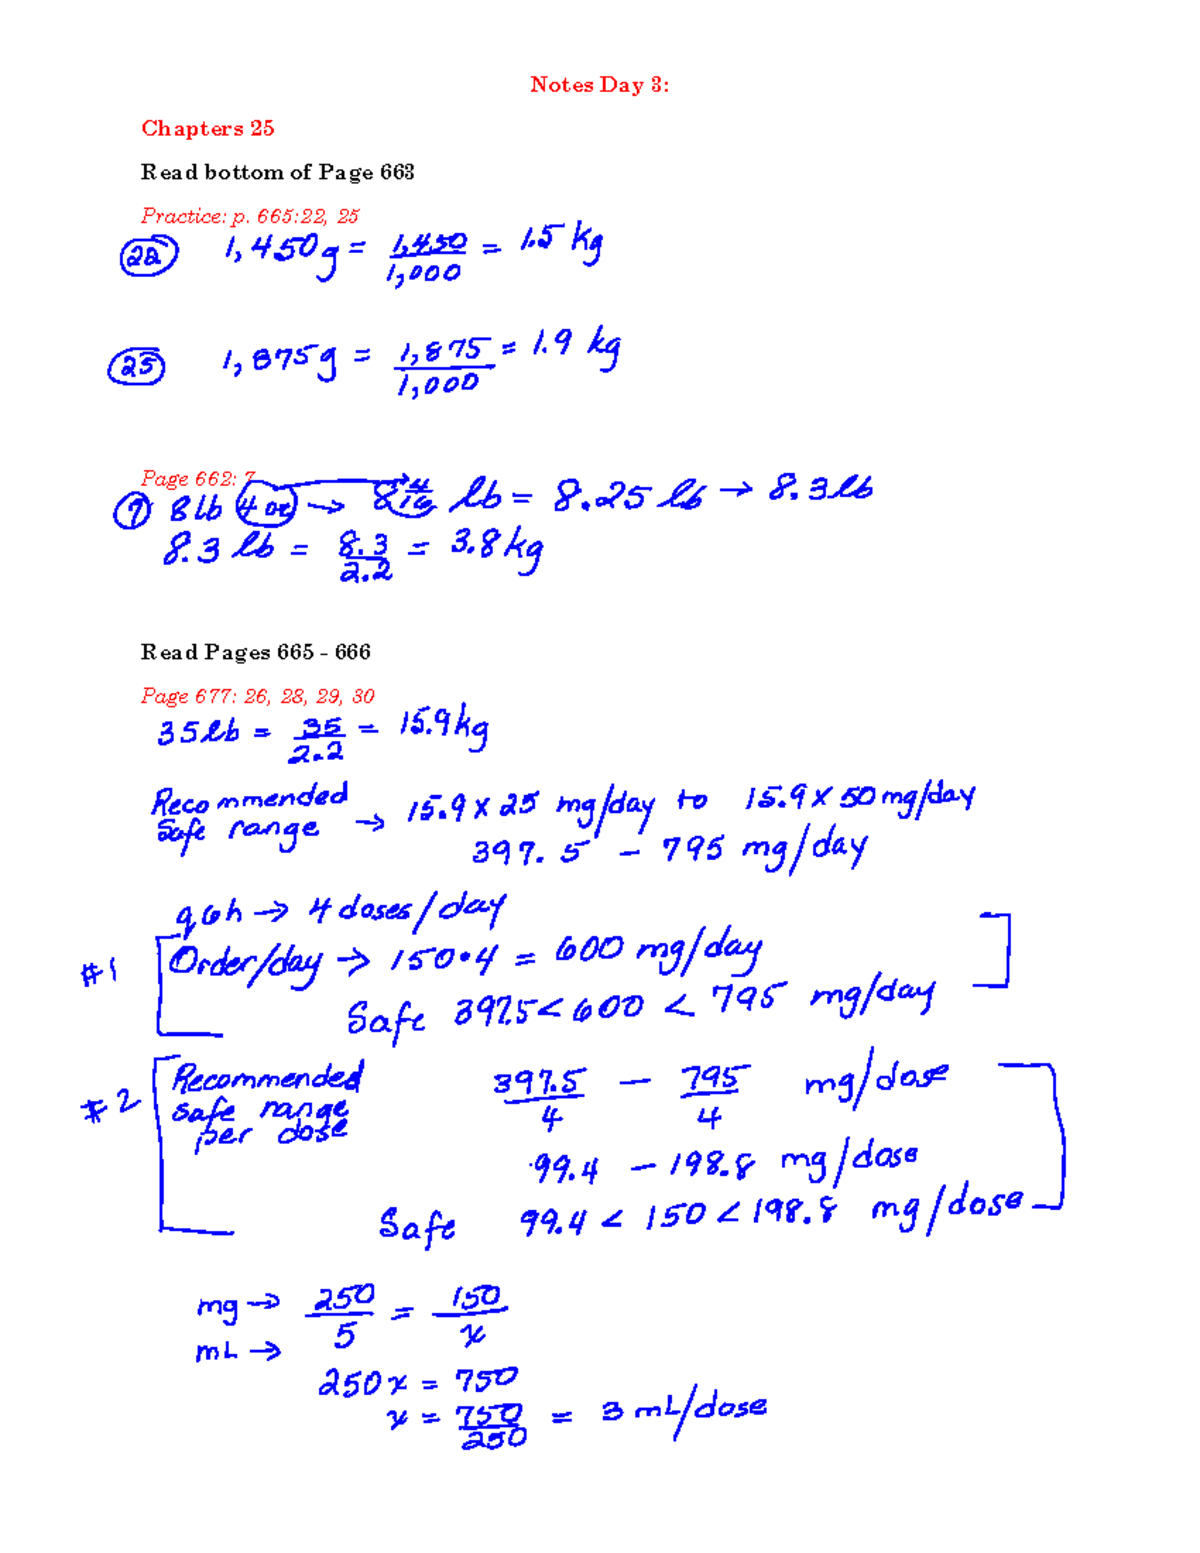 Notes Day 3:
Chapters 25
Read bottom of Page 663
Practice: p. 665:22, 25
22 1,450g = 1,450/1,000 = 1.5 kg
25 1,875g = 1,875/1,000 = 1.9 kg
Page 662: 7
7 8lb 4 oz → 8 4/16 lb = 8.25 lb → 8.3 lb
8.3 lb = 8.3/2.2 = 3.8 kg
Read Pages 665 - 666
Page 677: 26, 28, 29, 30
35 lb = 35/2.2 = 15.9 kg
Recommended
Safe range → 15.9 x 25 mg/day to 15.9 x 50 mg/day
397.5 - 795 mg/day
q6h → 4 doses/day
#1 Order/day → 150•4 = 600 mg/day
Safe 397.5 < 600 < 795 mg/day
#2 Recommended safe range per dose 397.5/4 - 795/4 mg/dose
99.4 - 198.8 mg/dose
Safe 99.4 < 150 < 198.8 mg/dose
mg → 250/5 = 150/x
mL →
250x = 750
x = 750/250 = 3 mL/dose